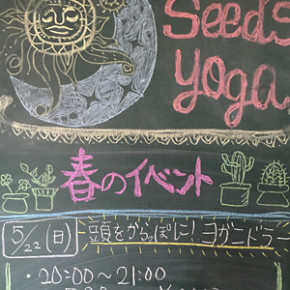 Seeds
yoga
春のイベント
5/22(日) 頭をからっぽに!ヨガニドラー
・20:00～21:00